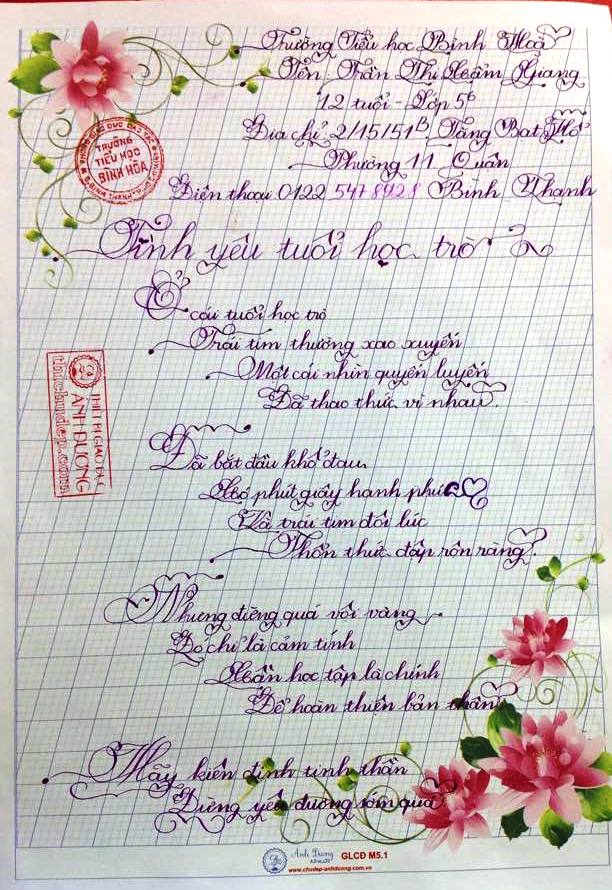 Trường Tiểu học Bình Hoà
Tên: Trần Thị Cẩm Giang
12 tuổi - Lớp 5⁶
Địa chỉ 2/15/51ᴮ Tăng Bạt Hổ
Phường 11 Quận
Điện thoại 0122 5478928 Bình Thạnh
TRƯỜNG
TIỂU HỌC
BÌNH HÒA
Tình yêu tuổi học trò
Ở
cái tuổi học trò
Trái tim thường xao xuyến
Một cái nhìn quyến luyến
Đã thao thức vì nhau.
THIẾT BỊ GIÁO DỤC
ÁNH DƯƠNG
Đã bắt đầu khổ đau
Có phút giây hạnh phúc
Là trái tim đôi lúc
Thổn thức đập rộn ràng.
Nhưng đừng quá vội vàng
Đó chỉ là cảm tính
Cần học tập là chính
Để hoàn thiện bản thân
Hãy kiên định tinh thần
Đừng yêu đương sớm quá
Ánh Dương GLCĐ M5.1
www.chudep-anhduong.com.vn